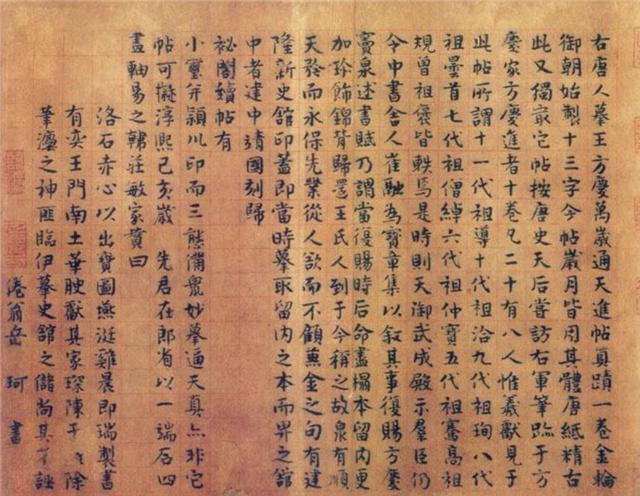 右唐人摹王方慶萬歲通天進帖真蹟一卷金輪
御朝始製十三字今帖歲月皆用其體唐紙精古
此又獨最它帖按唐史天后嘗訪右軍筆蹟于方
慶家方慶進者十卷凡二十有八人惟羲獻見于
此帖所謂十一代祖導十代祖洽九代祖珣八代
祖曇首七代祖僧綽六代祖仲寶五代祖騫高祖
規曾祖褒皆軼焉是時則天御武成殿示羣臣仍
令中書舍人崔融為寶章集以敘其事復賜方慶
竇泉述書賦乃謂當復賜時后命盡搨本留內更
加珍飾錦背歸還王氏人到于今稱之故泉有順
天矜而永保先業從人欲而不顧蒹金之句有建
隆新史館印蓋即當時摹取留內之本而畀之館
中者建中靖國刻歸
祕閣續帖有
小璽并潁川印而三態備眾妙摹通天真亦非它
帖可擬淳熙己亥歲 先君在郎省以一端石四
盡軸易之韓莊敏家贊曰
洛石赤心以出寶圖燕涎雞晨即瑞製書
有奕王門南土華腴獻其家琛陳于 除
筆灋之神匪臨伊摹史館之儲尚其 誣
倦翁岳 珂 書